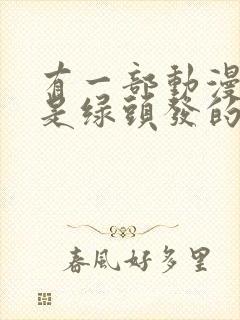 有一部動漫
是綠頭發的
春風好多里